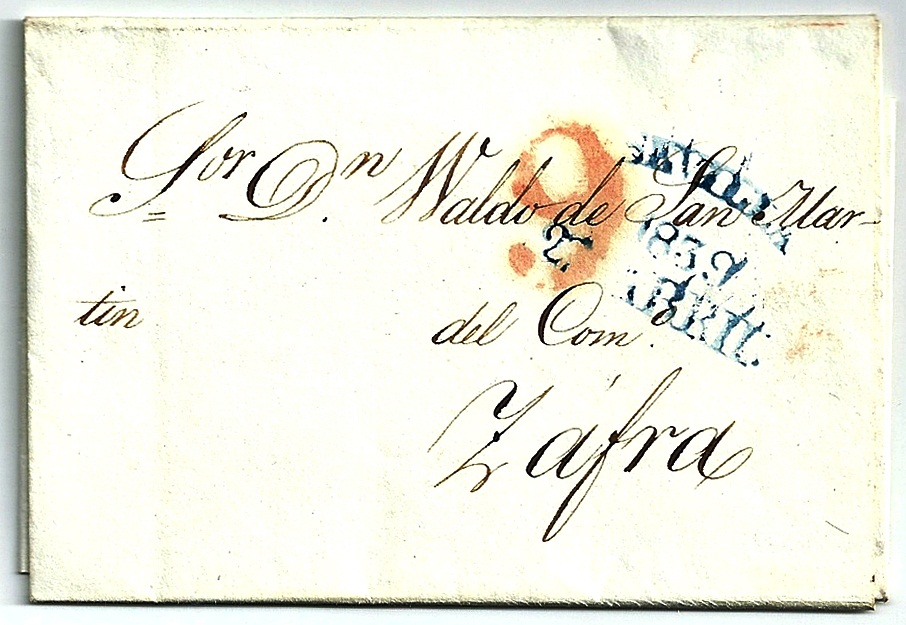 Sor. Dn. Waldo de San Mar-
tin del Como.
Záfra
9
SEVILLA
2 1839
ABRIL